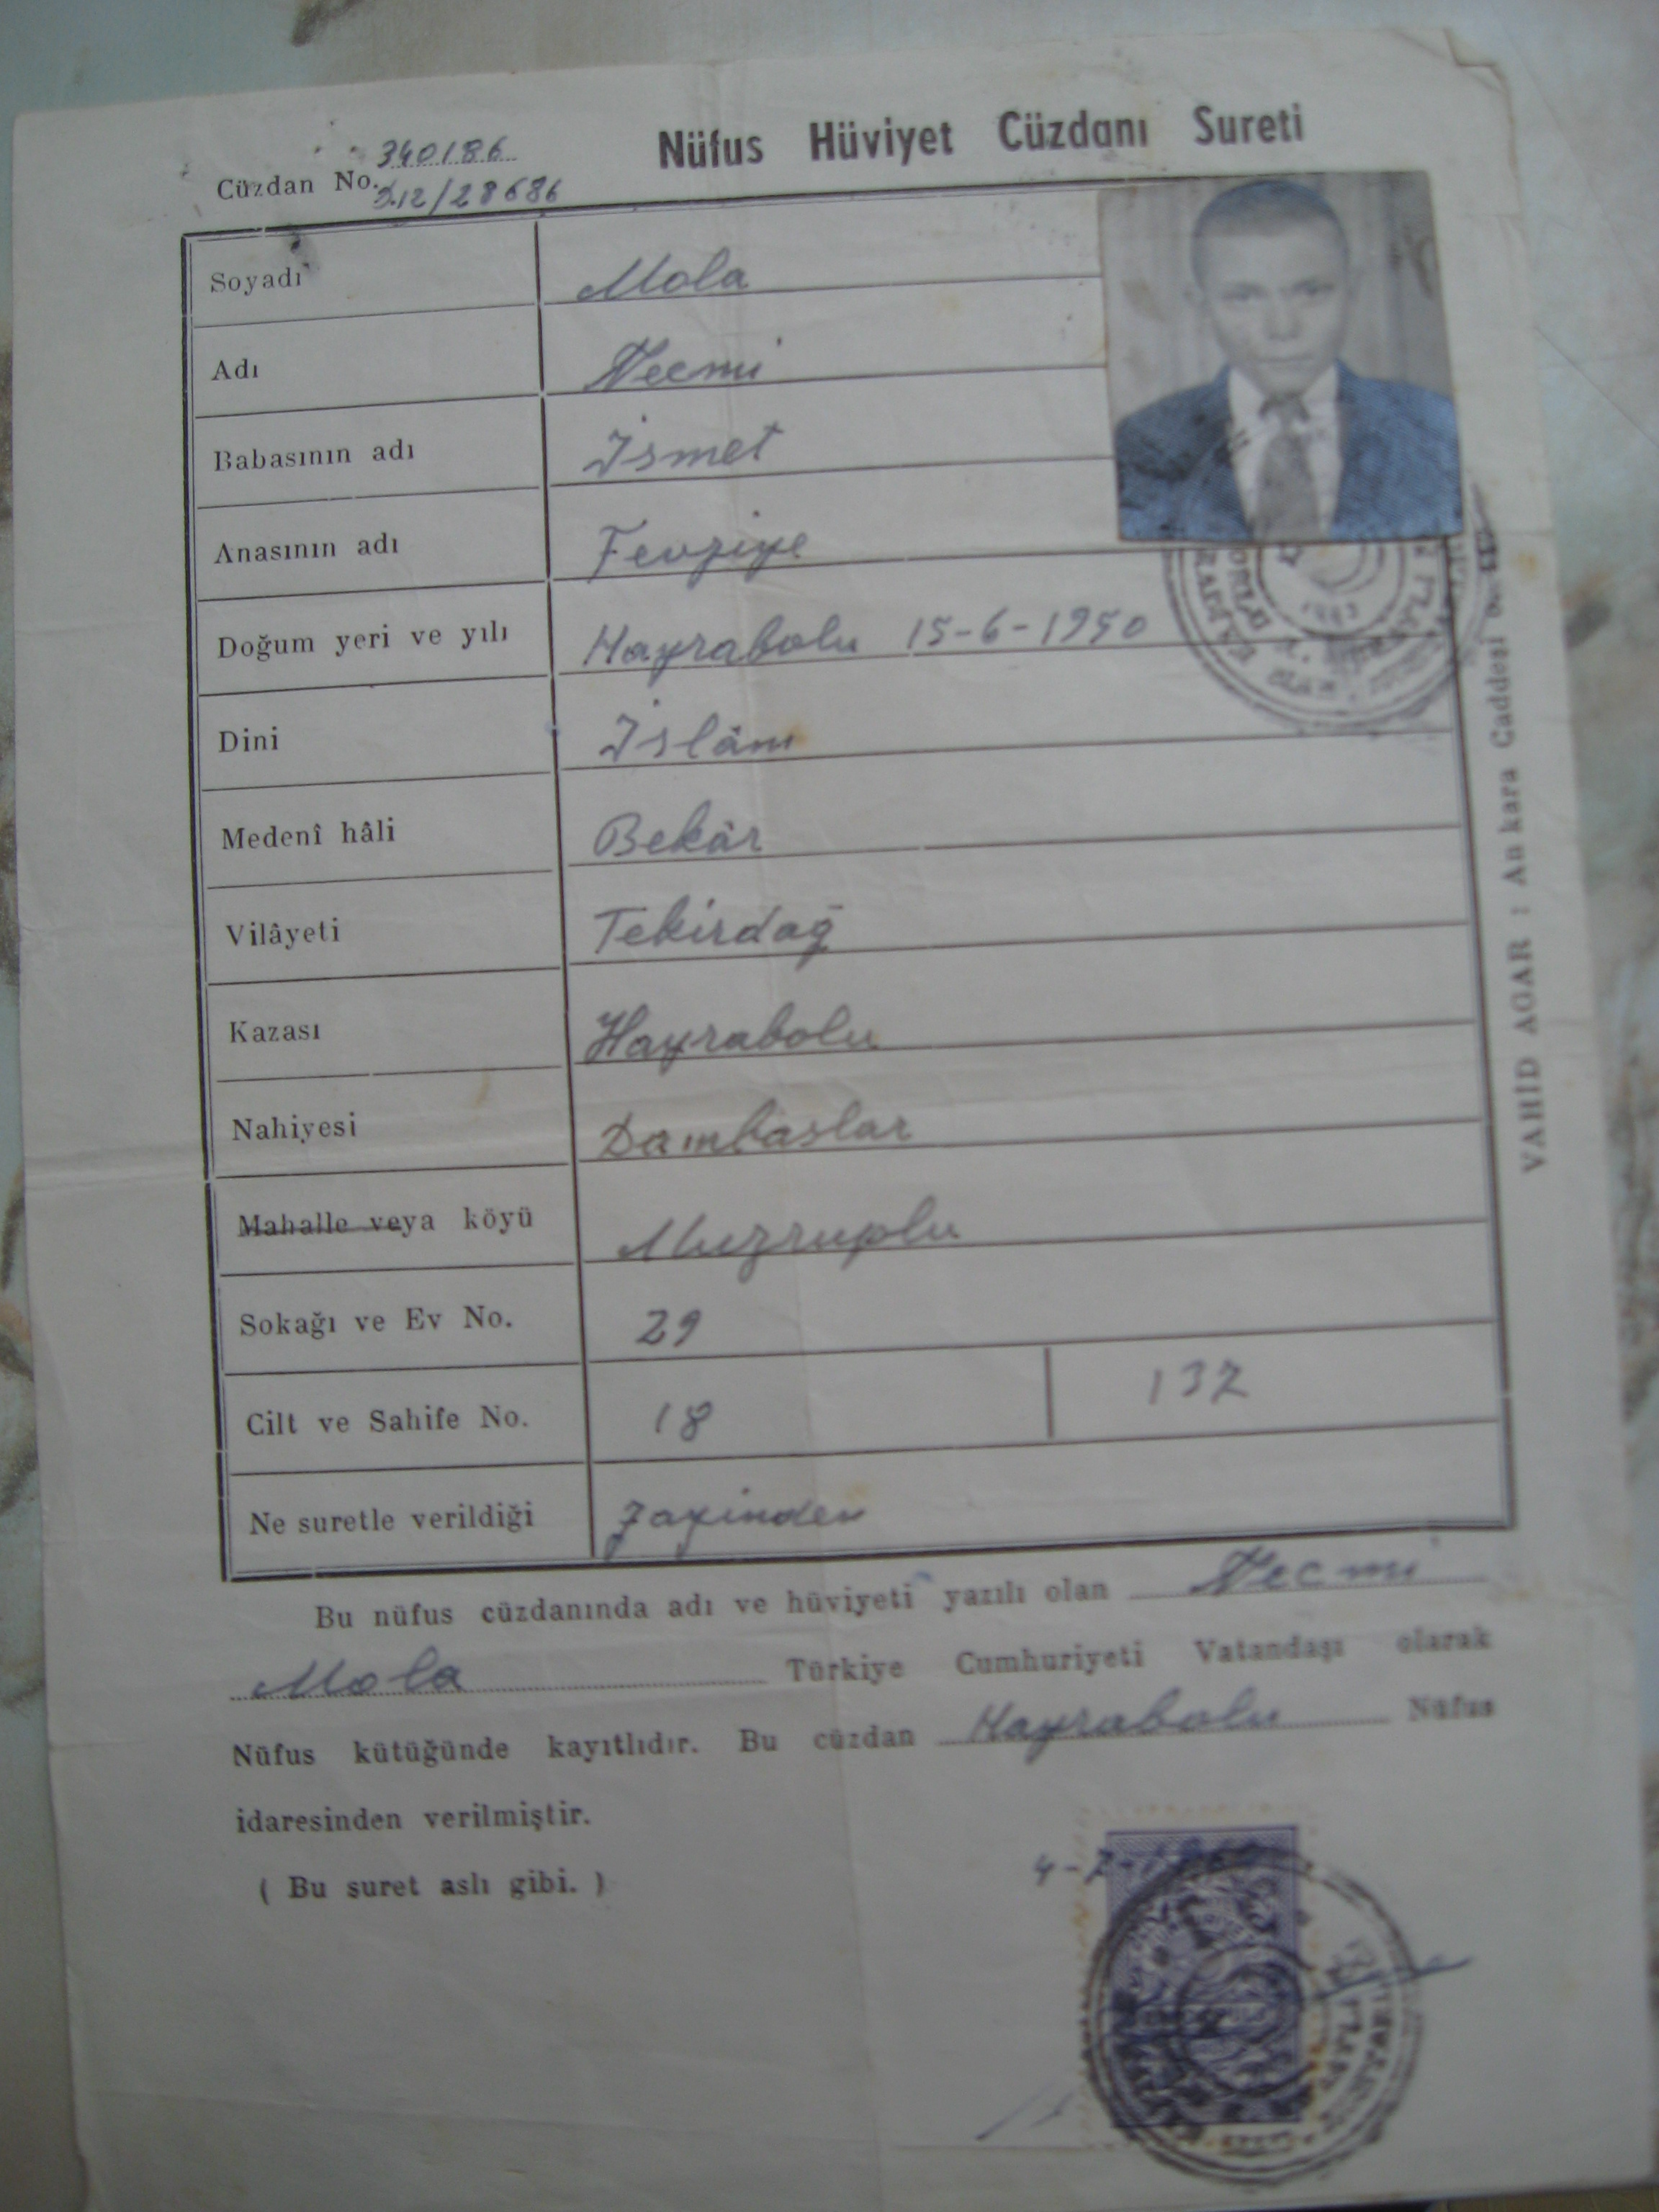 Nüfus Hüviyet Cüzdanı Sureti
Cüzdan No. 340186
D.12/28686
Soyadı Mola
Adı Necmi
Babasının adı İsmet
Anasının adı Fevziye
Doğum yeri ve yılı Hayrabolu 15-6-1950
Dini İslâm
Medenî hâli Bekâr
Vilâyeti Tekirdağ
Kazası Hayrabolu
Nahiyesi Dambaslar
Mahalle veya köyü Muzruplu
Sokağı ve Ev No. 29
Cilt ve Sahife No. 18 137
Ne suretle verildiği Zayinden
Bu nüfus cüzdanında adı ve hüviyeti yazılı olan Necmi
Mola Türkiye Cumhuriyeti Vatandaşı olarak
Nüfus kütüğünde kayıtlıdır. Bu cüzdan Hayrabolu Nüfus
idaresinden verilmiştir.
( Bu suret aslı gibi. )
VAHİD AGAR : Ankara Caddesi